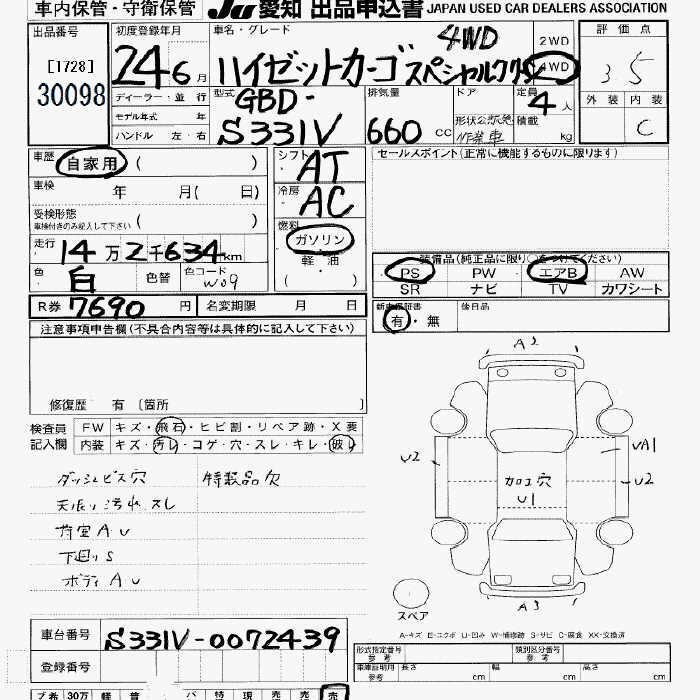 車内保管・守衛保管
JU 愛知 出品申込書 JAPAN USED CAR DEALERS ASSOCIATION
出品番号
[1728]
30098
初度登録年月
24 6 月
車名・グレード
4WD
ハイゼットカーゴ スペシャルクリーン
2WD
4WD
評価点
3.5
外装 内装
C
ディーラー・並行
モデル年式 年
ハンドル 左・右
型式
GBD-
S331V
排気量
660 cc
ドア
形状 公認
作業車
定員
4 人
積載
kg
車歴
自家用 ( )
車検
年 月( 日)
受検形態
車検付きのみ記入して下さい ( )
走行
14万2千634km
色
白
色替
色コード
W09
シフト
AT
冷房
AC
燃料
ガソリン
軽・油
( ・ )
セールスポイント(正常に機能するものに限ります)
装備品(純正品に限り○をつけてください)
PS PW エアB AW
SR ナビ TV カワシート
R券 7690 円 名変期限 月 日
新車保証書
有・無
後日品
注意事項申告欄(不具合内容等は具体的に記入して下さい)
修復歴 有 〔箇所 〕
検査員
記入欄
FW キズ・飛石・ヒビ割・リペア跡・X要
内装 キズ・汚レ・コゲ・穴・スレ・キレ・破レ
ダッシュビス穴
特製品欠
天張リ汚れスレ
荷室AU
下廻リS
ボディAU
A3
U2
UA1
U2
加工穴
U1
A3
スペア
A-キズ E-エクボ U-凹み W-補修跡 S-サビ C-腐食 XX-交換済
車台番号
S331V-0072439
登録番号
型式指定番号
参考
類別区分番号
参考
車庫証明用
参考
長さ cm 幅 cm 高さ cm